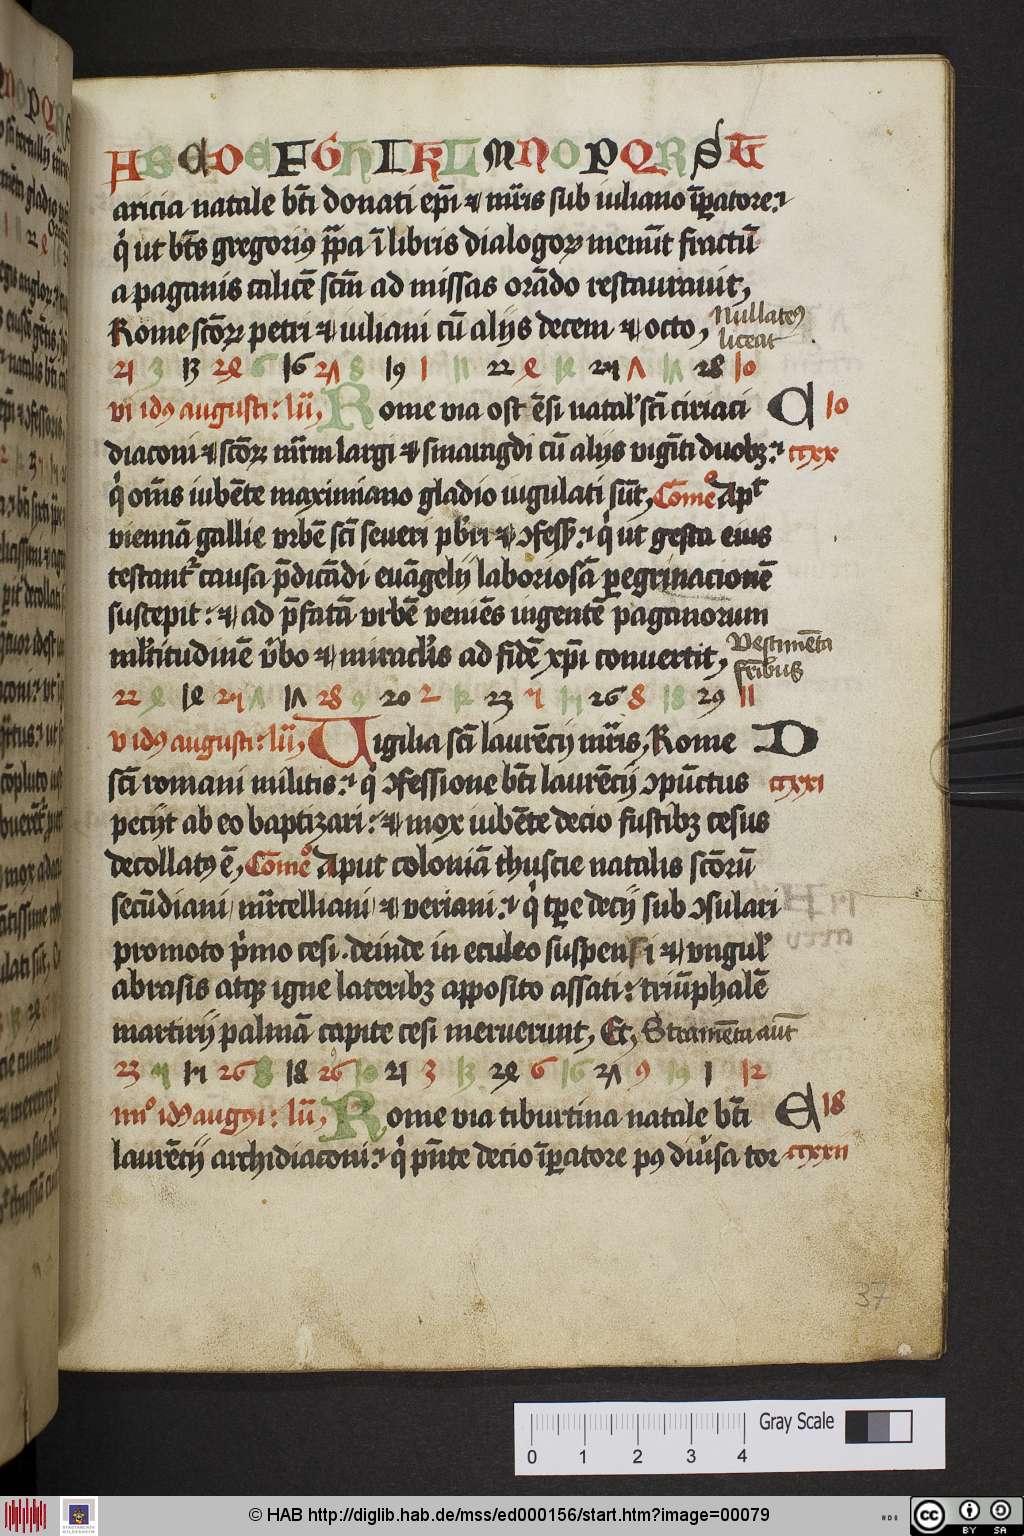 A B C D E F G H I K L M N O P Q R S T
aricia natale bt̄i donati ep̄i ⁊ mr̄is sub iuliano īꝑatore ⁊
q̇ ut bt̄s gregoriꝰ pp̄a ī libris dialogoꝝ memīt fractū
a paganis calicē sc̄m ad missas orādo restaurauit,
Rome sc̄oꝝ petri ⁊ iuliani cū alijs decem ⁊ octo, Nullateꝰ
liceat
21 3 13 24 6 16 27 8 19 1 11 22 4 14 25 7 17 28 10
vi idꝰ augusti: lū, Rome via ost̄ ēsi natal' sc̄i ciriaci C 10
diaconi ⁊ sc̄oꝝ mr̄m largi ⁊ smaragdi cū alijs vigīti duobꝫ ⁊ ccxx
q̇ om̄s iubēte maximiano gladio iugulati sūt, Com̄eº Apt'
viennā gallie vrbē sc̄i seueri pb̄ri ⁊ ɔfess' ⁊ q̇ ut gesta eius
testant' causa p̄dicādi euāgelij laboriosā ꝑegrinacionē
suscepit: ⁊ ad p̄fatā vrbē veniēs ingentē paganorum
ml'titudinē v̄bo ⁊ miracl'is ad fidē xp̄i conuertit, Vestimēta
fr̄ibus
22 4 14 25 7 17 28 9 20 2 12 23 5 15 26 8 18 29 11
v idꝰ augusti: lū, Vigilia sc̄i laurēcij mr̄is, Rome D
sc̄i romani militis ⁊ q̇ ɔfessione bt̄i laurēcij ɔpūctus ccxxi
pecijt ab eo baptizari: ⁊ mox iubēte decio fustibꝫ cesus
decollatꝰ ē, Com̄eº Aput coloniā thuscie natalis sc̄orū
secūdiani / mr̄celliani ⁊ veriani ⁊ q̇ tꝑe decij sub ɔsulari
promoto p̄mo cesi . deinde in eculeo suspensi ⁊ vngul'
abrasis atqꝫ igne lateribꝫ apposito assati: triūphalē
martirij palmā capite cesi meruerunt, Et, Stramēta aut̄
23 5 15 26 8 18 26 10 21 3 13 24 6 16 27 9 19 1 12
iiiiº idꝰ augꝰti: lū, Rome via tiburtina natale bt̄i E 18
laurēcij archidiaconi ⁊ q̇ pn̄te decio īꝑatore pꝰ diūsa tor ccxxii
37
0 1 2 3 4
Gray Scale
© HAB http://diglib.hab.de/mss/ed000156/start.htm?image=00079
cc BY SA